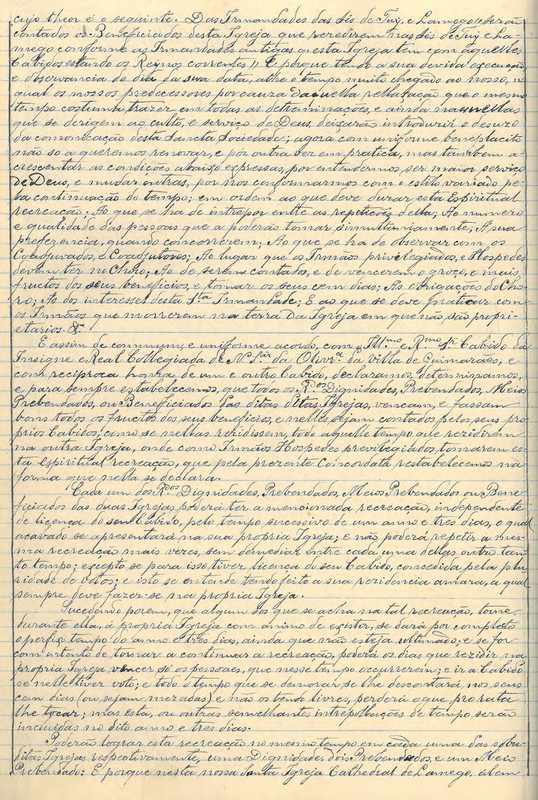 cujo theor é o seguinte. Das Irmandades das sés de Tuy, e Lamego // serão
contados os Beneficiados desta Igreja que rezedirem nas sés de Tuy e La-
mego conforme as Irmandades antigas q. esta Igreja tem com aquelles
Cabidos estando os Reynos correntes // E porque toda a sua devida execução
e observancia do dia da sua data, athé o tempo muito chegado ao nosso, no
qual os nossos predecessores por cauza daquella rellaxação que o mesmo
tempo costuma trazer em todas as determinações, e ainda naquellas
que se derigem ao culto, e serviço de Deus deixarão introduzir o desuzo
da comonicação desta Sancta Sociedade; agora com uniforme beneplacito
não so a queremos renovar, e pôr outra vez em pratica, mas tambem a
crescentar as condições abaixo expressas, por entendermos, ser maior serviço
de Deus, e mudar outras, por nos conformarmos com o estilo variado pe-
la continuação do tempo; em ordem ao que deve durar esta Espiritual
recreação; Ao que se ha de intrepor entre as repetições della; Ao numero
e qualidade das pessoas que a poderão tomar simultaneamente; A sua
preferencia, quando concorrerem; Ao que se ha de observar com os
Coadjuvados, e Coadjutores; Ao lugar que os Irmãos previlegiados, e Hospedes
devem ter no Choro; Ao de serem contados, e de vencerem o groço, e mais
fructos dos seus beneficios, e tomar os seus cem dias; As obrigações do Cho-
ro; Ao dos interesses desta S.ta Irmandade; E ao que se deve praticar com
os Irmãos que morrerem na terra da Igreja em que não são propri-
etarios &.
E assim de commum, e uniforme acordo, com o Ill.mo e R.mo S.r Cabido da
Insigne e Real Collegiada de N.ª Sr.ª da Oliv.ra da Villa de Guimarães, e
com reciproca honra, de um e outro Cabido, declaramos, determinamos,
e para sempre estabelecemos, que todos os R.dos Dignidades, Prebendados, Meios
Prebendados, ou Beneficiados das ditas Igrejas, vençam, e façam
bons todos os fructos dos seus beneficios, e nelles sejam contados pelos seus pro-
prios Cabidos, como se nellas rezidissem, todo aquelle tempo que rezidirem
na outra Igreja, onde como Irmãos Hospedes previlegiados tomarem es-
ta Espiritual recreação, que pela prezente Concordata restabelecemos na
forma que nella se declara.
Cada um dos R.dos Dignidades, Prebendados, Meios Prebendados ou Bene-
ficiados das duas Igrejas poderá ter a mencionada recreação, independente
de licença do seu Cabido, pelo tempo sucessivo de um anno e tres dias, o qual
acabado se apresentará na sua propria Igreja; e não poderá repetir a mes-
ma recreação mais vezes, sem demediar entre cada uma dellas outro tan-
to tempo; excepto se para isso tiver licença do seu Cabido, concedida pela plu-
ridade de votos; e isto se entende tendo feito a sua rezidencia amara, a qual
sempre deve fazer-se na propria Igreja.
Sucedendo porem, que algum dos que se acha na tal recreação, torne
durante ella, á propria Igreja com animo de existir, se dará por completo
e perfeito tempo do anno e tres dias, ainda que não esteja ultimado; e se for
com intento de tornar a continuar a recreação, poderá os dias que rezidir na
propria Igreja vencer só os pessoaes, que nesse tempo occurrerem; e ir a Cabido
se nelle tiver voto; e todo o tempo que se demorar se lhe descontará nos seus
cem dias (ou sejam mezadas) e não os tendo livres, perderá o que pro rata
lhe tocar; mas esta, ou outras semelhantes intrepollações de tempo serão
incluidas no dito anno e tres dias.
Poderão lograr esta recreação no mesmo tempo em cada uma das sobre-
ditas Igrejas respectivamente, uma Dignidade, dois Prebendados, e um Meio
Prebendado: E porque nesta nossa Santa Igreja Cathedral de Lamego, alem